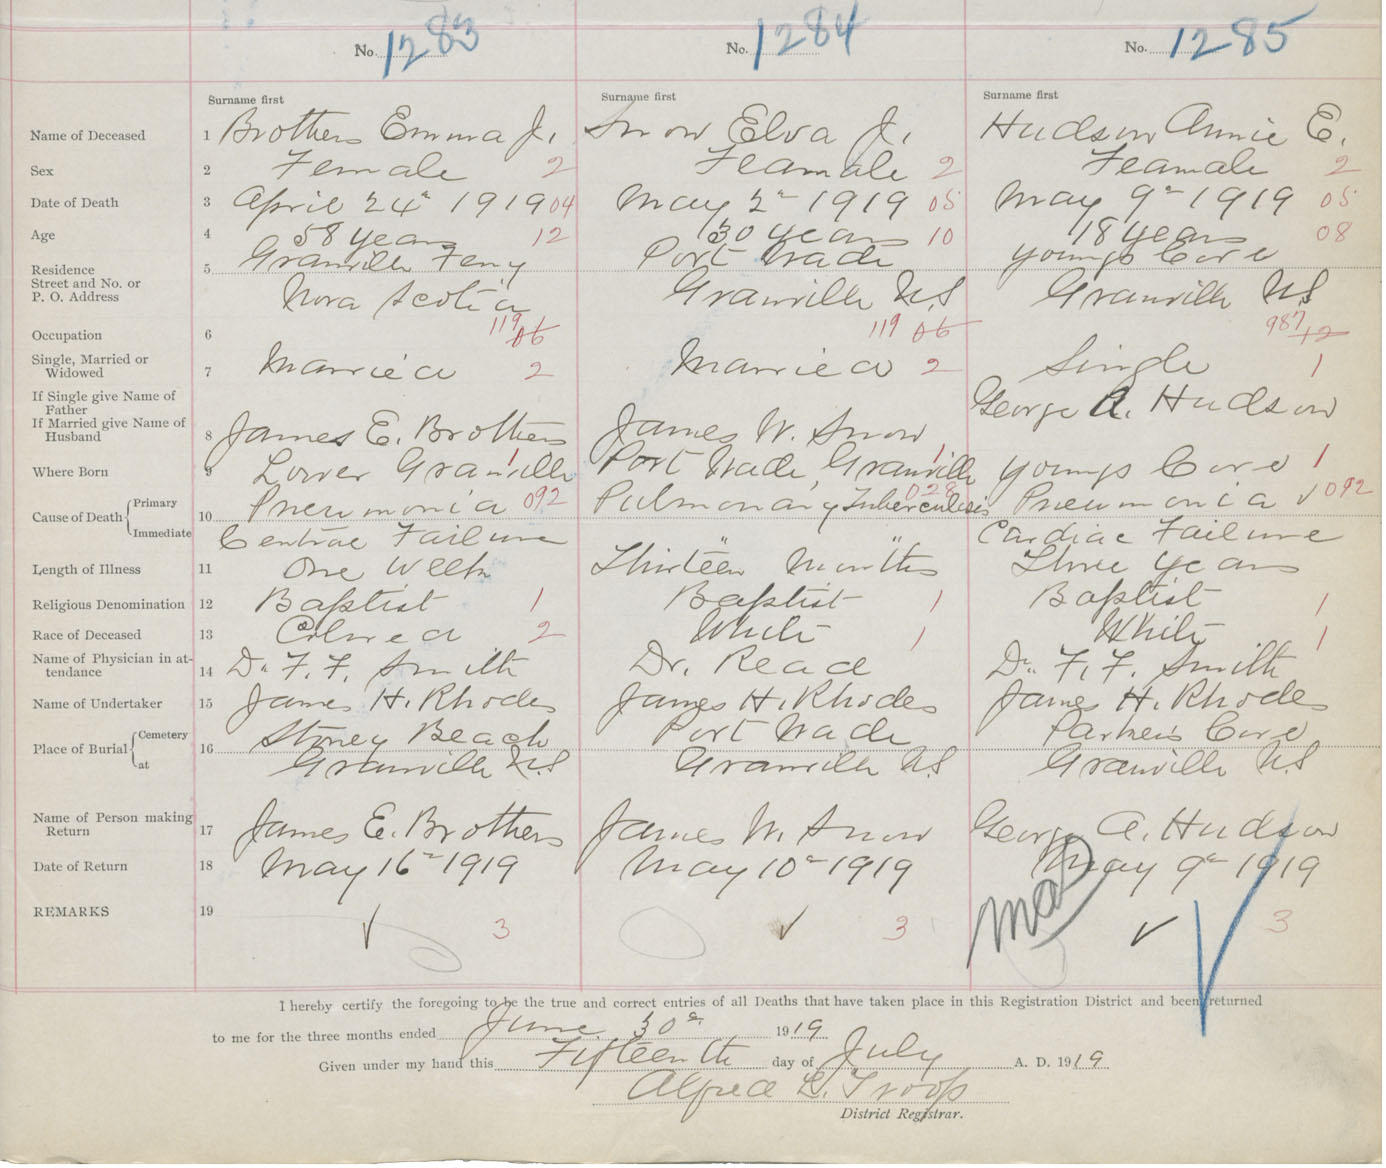 No. 1283 No. 1284 No. 1285
Surname first Surname first Surname first
Name of Deceased 1 Brothers Emma J. Snow Elva J. Hudson Annie E.
Sex 2 Female 2 Feamale 2 Feamale 2
Date of Death 3 April 24" 1919 04 May 2" 1919 05 May 9" 1919 05
Age 4 58 years 12 30 years 10 18 years 08
Residence 5 Granville Ferry Port Wade Youngs Cove
Street and No. or
P. O. Address Nova Scotia Granville N.S Granville N.S
119 06 119 06 987 12
Occupation 6
Single, Married or
Widowed 7 Married 2 Married 2 Single 1
If Single give Name of
Father George A. Hudson
If Married give Name of
Husband 8 James E. Brothers James W. Snow
Where Born 9 Lower Granville 1 Port Wade, Granville 1 Youngs Cove 1
Cause of Death Primary 10 Pneumonia 092 Pulmonary Tuberculisis 028 Pneumonia √ 092
Immediate Failure Cardiac Failure
Length of Illness 11 One Week Thirteen Months Three years
Religious Denomination 12 Baptist 1 Baptist 1 Baptist 1
Race of Deceased 13 Colored 2 White 1 White 1
Name of Physician in at-
tendance 14 Dr F. F. Smith Dr. Read Dr. F. F. Smith
Name of Undertaker 15 James H. Rhodes James H. Rhodes James H. Rhodes
Place of Burial Cemetery 16 Stoney Beach Port Wade Parkers Cove
at Granville N.S Granville N.S Granville N.S
Name of Person making
Return 17 James E. Brothers James W. Snow George A. Hudson
Date of Return 18 May 16" 1919 May 10" 1919 May 9" 1919
REMARKS 19 √ 3 √ 3 √ 3
I hereby certify the foregoing to be the true and correct entries of all Deaths that have taken place in this Registration District and been returned
to me for the three months ended June 30" 1919
Given under my hand this Fifteenth day of July A. D. 1919
Alfred L. Troop
District Registrar.